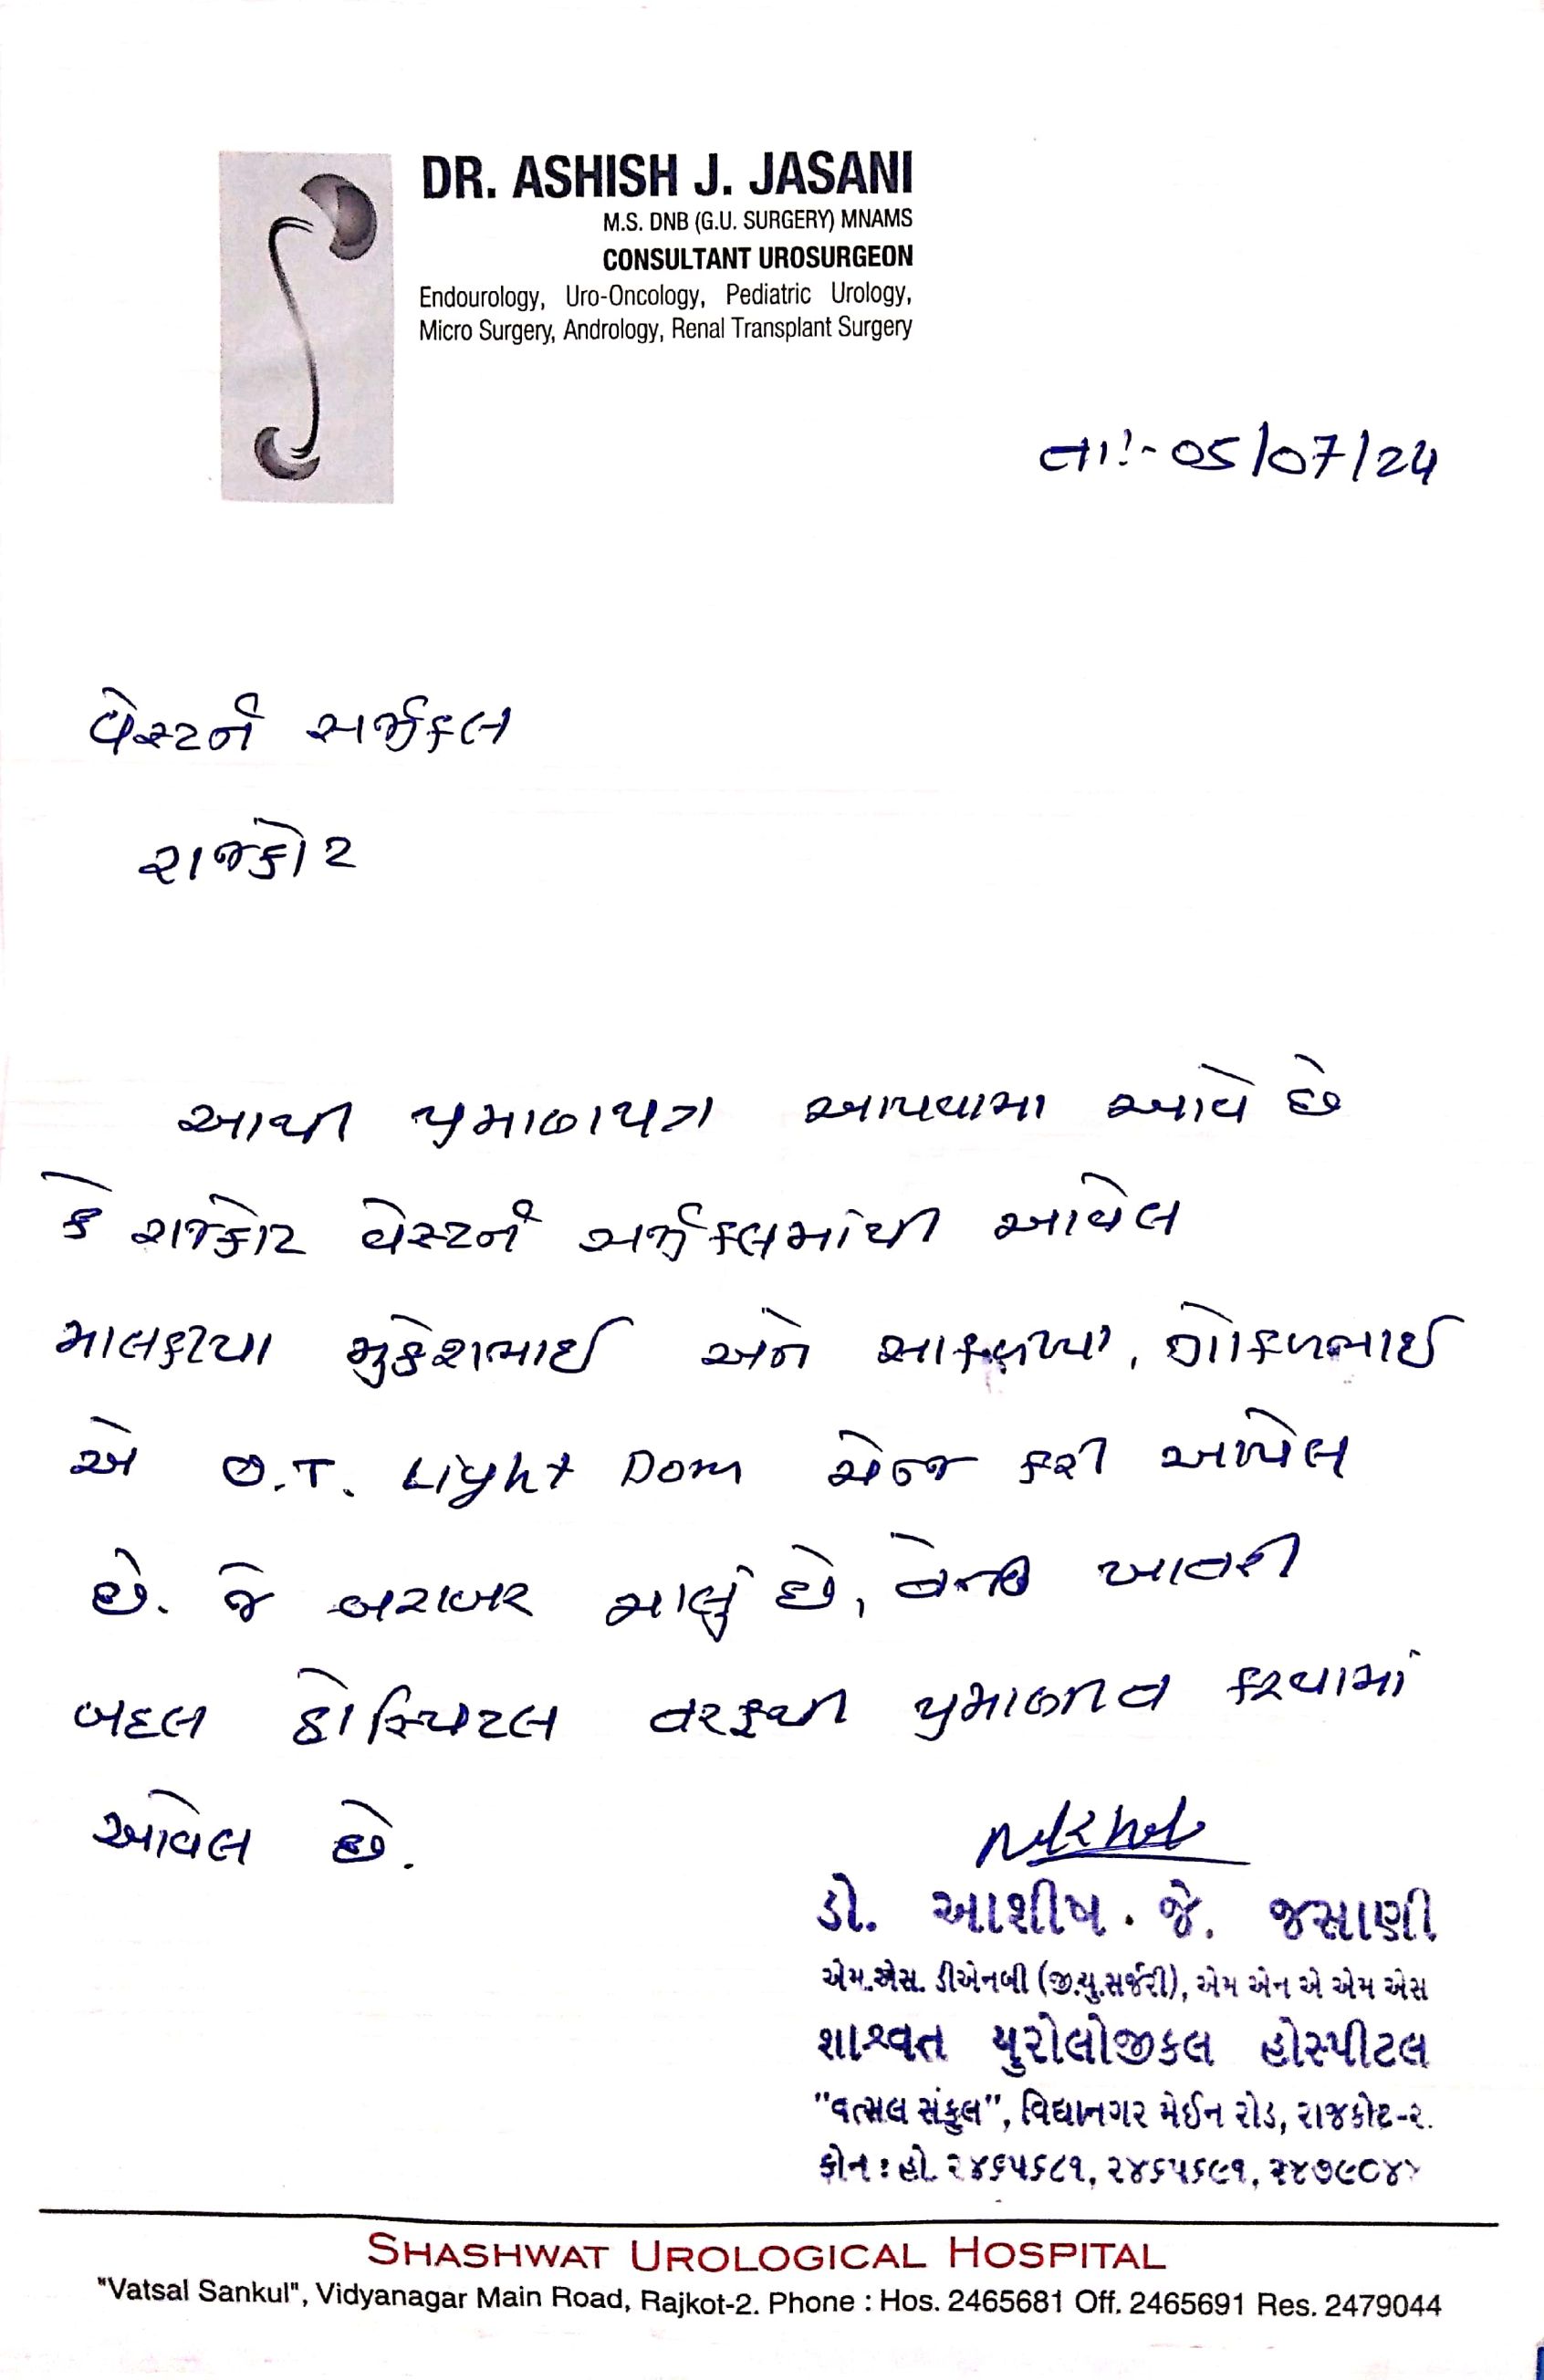 DR. ASHISH J. JASANI
M.S. DNB (G.U. SURGERY) MNAMS
CONSULTANT UROSURGEON
Endourology, Uro-Oncology, Pediatric Urology,
Micro Surgery, Andrology, Renal Transplant Surgery
તા:- 05/07/24
વેસ્ટર્ન સર્જીકલ
રાજકોટ
આથી પ્રમાણપત્ર આપવામા આવે છે
કે રાજકોટ વેસ્ટર્ન સર્જીકલમાંથી આવેલ
માલકીયા મુકેશભાઈ અને ગોકળભાઈ
એ O.T. Light Dom ચેન્જ કરી આપેલ
છે. જે બરાબર ચાલું છે, તેની ખાતરી
બદલ હોસ્પિટલ તરફથી પ્રમાણીત કરવામાં
આવેલ છે.
ડો. આશીષ . જે. જસાણી
એમ.એસ. ડીએનબી (જી.યુ.સર્જરી), એમ એન એ એમ એસ
શાશ્વત યુરોલોજીકલ હોસ્પીટલ
"વત્સલ સંકુલ", વિદ્યાનગર મેઈન રોડ, રાજકોટ-૨.
ફોન : હો. ૨૪૬૫૬૮૧, ૨૪૬૫૬૯૧, ૨૪૭૯૦૪૪
SHASHWAT UROLOGICAL HOSPITAL
"Vatsal Sankul", Vidyanagar Main Road, Rajkot-2. Phone : Hos. 2465681 Off. 2465691 Res. 2479044